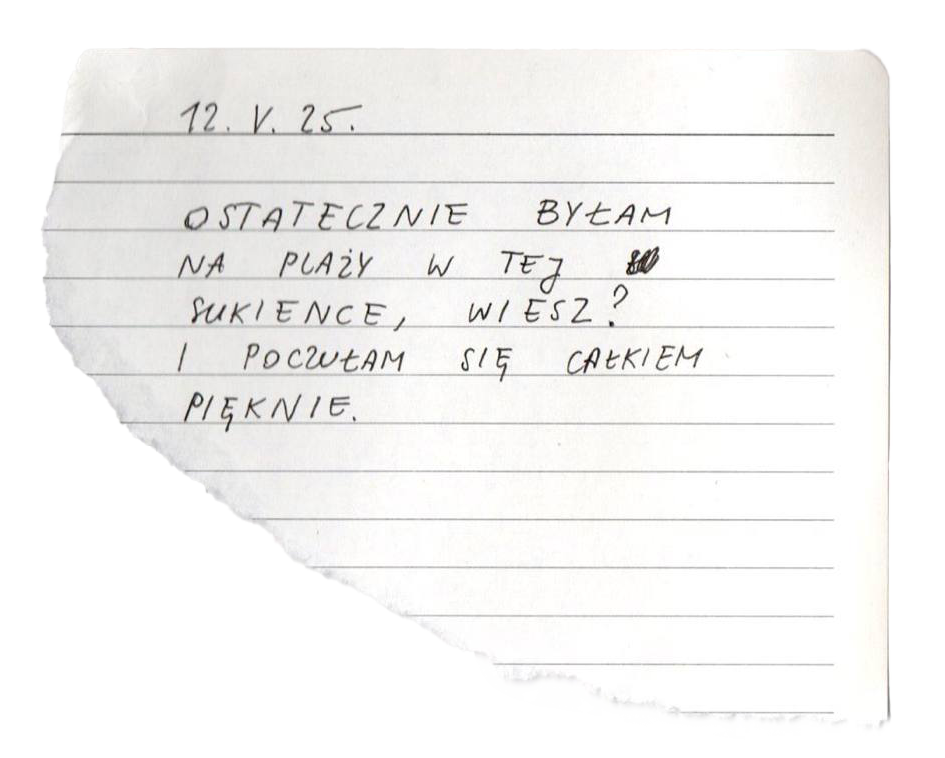 12. V. 25.
OSTATECZNIE BYŁAM
NA PLAŻY W TEJ
SUKIENCE, WIESZ?
I POCZUŁAM SIĘ CAŁKIEM
PIĘKNIE.